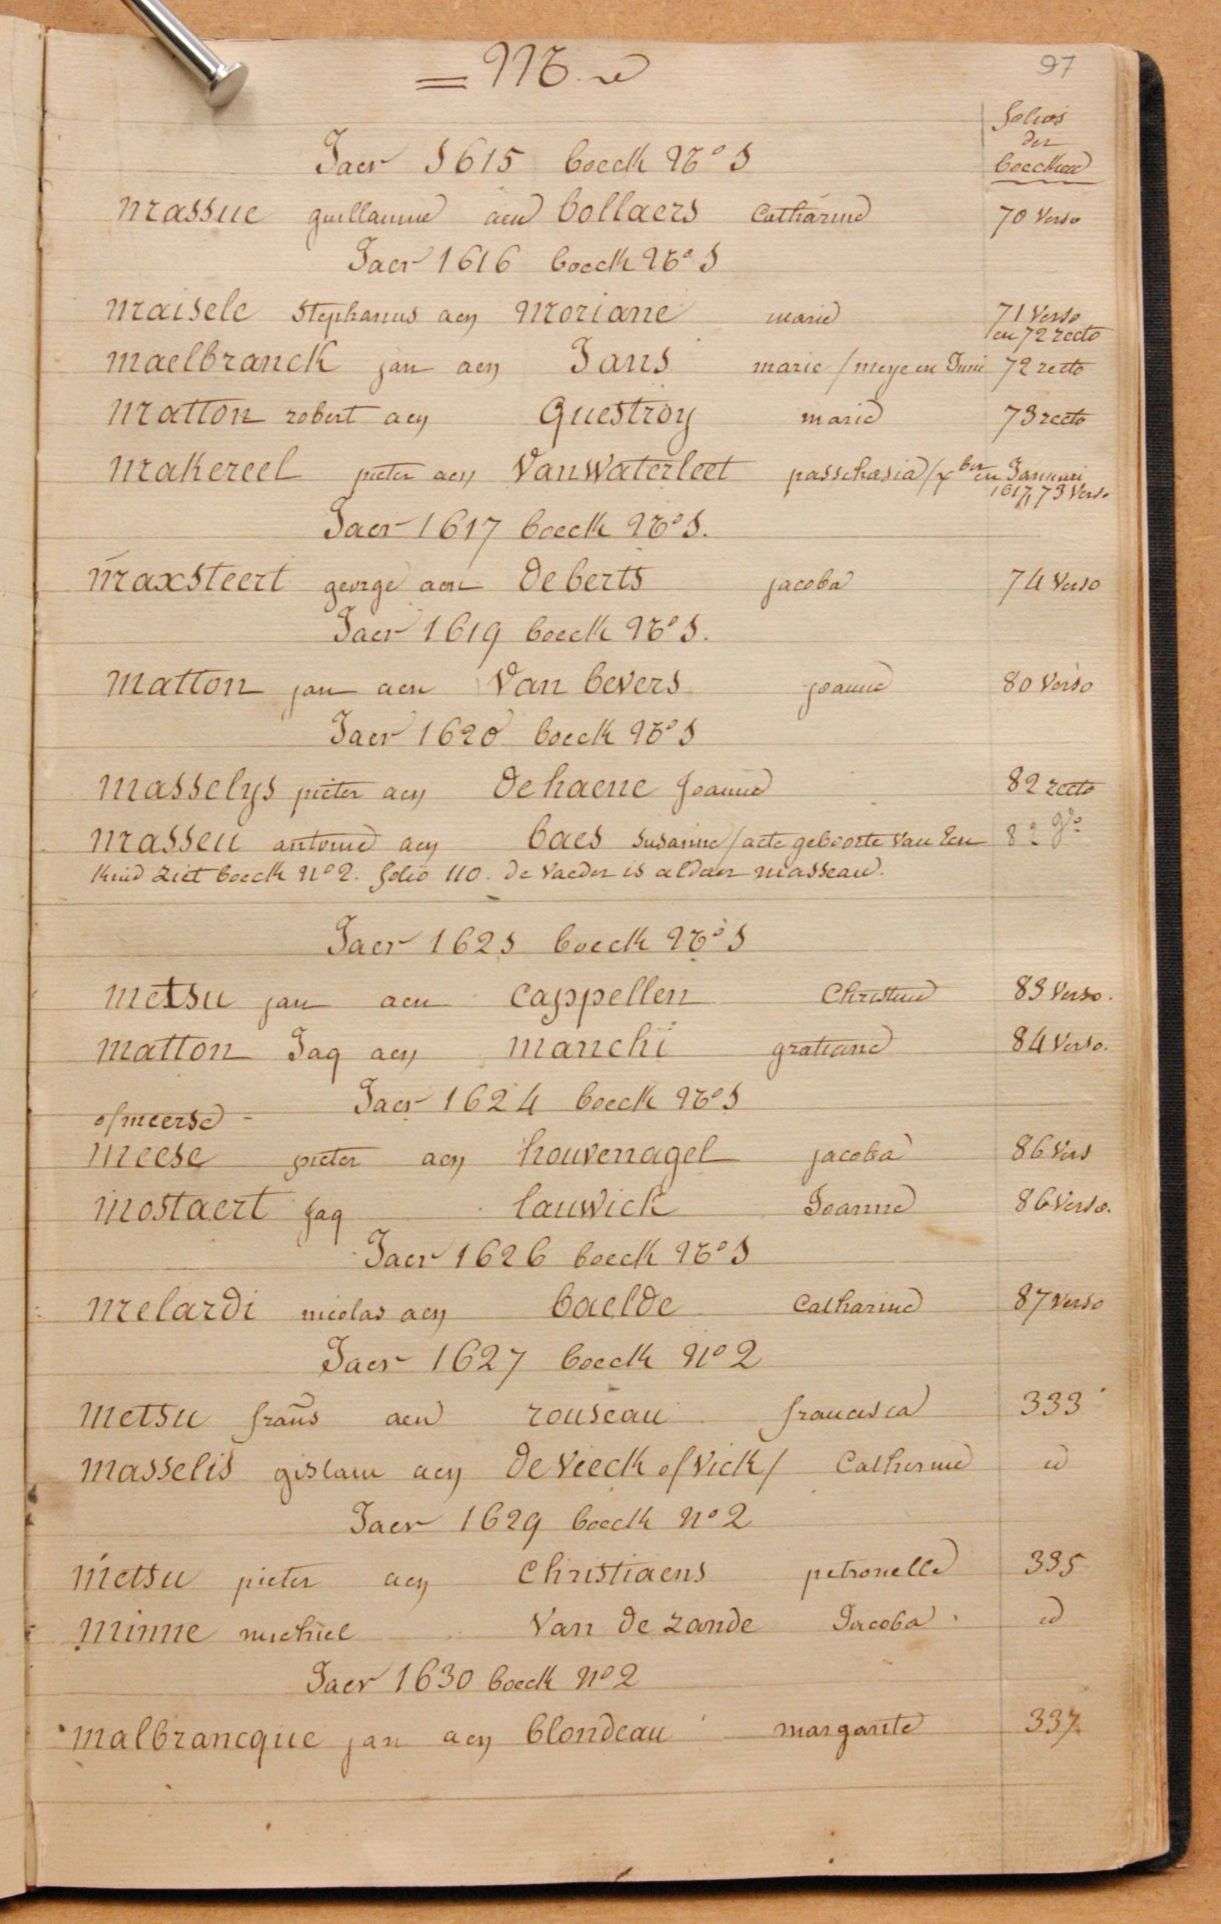 = M. e
97
folios
der
boecken
Jaer 1615 boeck No 1
massue guillaume aen bollaers catharine 70 verso
Jaer 1616 boeck No 1
maisele stephanus aen Moriane marie 71 verso
en 72 recto
maelbranck jan aen Jans marie / meye en Juni 72 recto
matton robert aen questroy marie 73 recto
makereel pieter aen Vanwaterleet passchasia / xber en Januari
1617, 73 verso
Jaer 1617 boeck No 1.
maxsteert george aen deberts jacoba 74 verso
Jaer 1619 boeck No 1.
matton jan aen Van bevers joanne 80 verso
Jaer 1620 boeck No 1
masselys pieter aen dehaene Joanne 82 recto
masseu antoine aen baes susanne / acte geboorte van Een 82 Vo
kind ziet boeck no 2. folio 110. de Vaeder is aldaer masseau.
Jaer 1621 boeck No 1
metsu jan aen cappellen Christine 83 verso.
matton Jaq aen manchi gratiane 84 verso.
Jaer 1624 boeck No 1
of meerse -
meese pieter aen houvenagel jacoba 86 vers
mostaert Jaq lauwick Joanne 86 verso.
Jaer 1626 boeck No 1
melardi nicolas aen baelde Catharine 87 verso
Jaer 1627 boeck No 2
metsu frans aen rouseau francisca 333
masselis gislain aen de vieck of Vick / Catherine id
Jaer 1629 boeck No 2
metsu pieter aen christiaens petronelle 335
minne michiel Van de zande Jacoba id
Jaer 1630 boeck No 2
malbrancque jan aen blondeau margarite 337